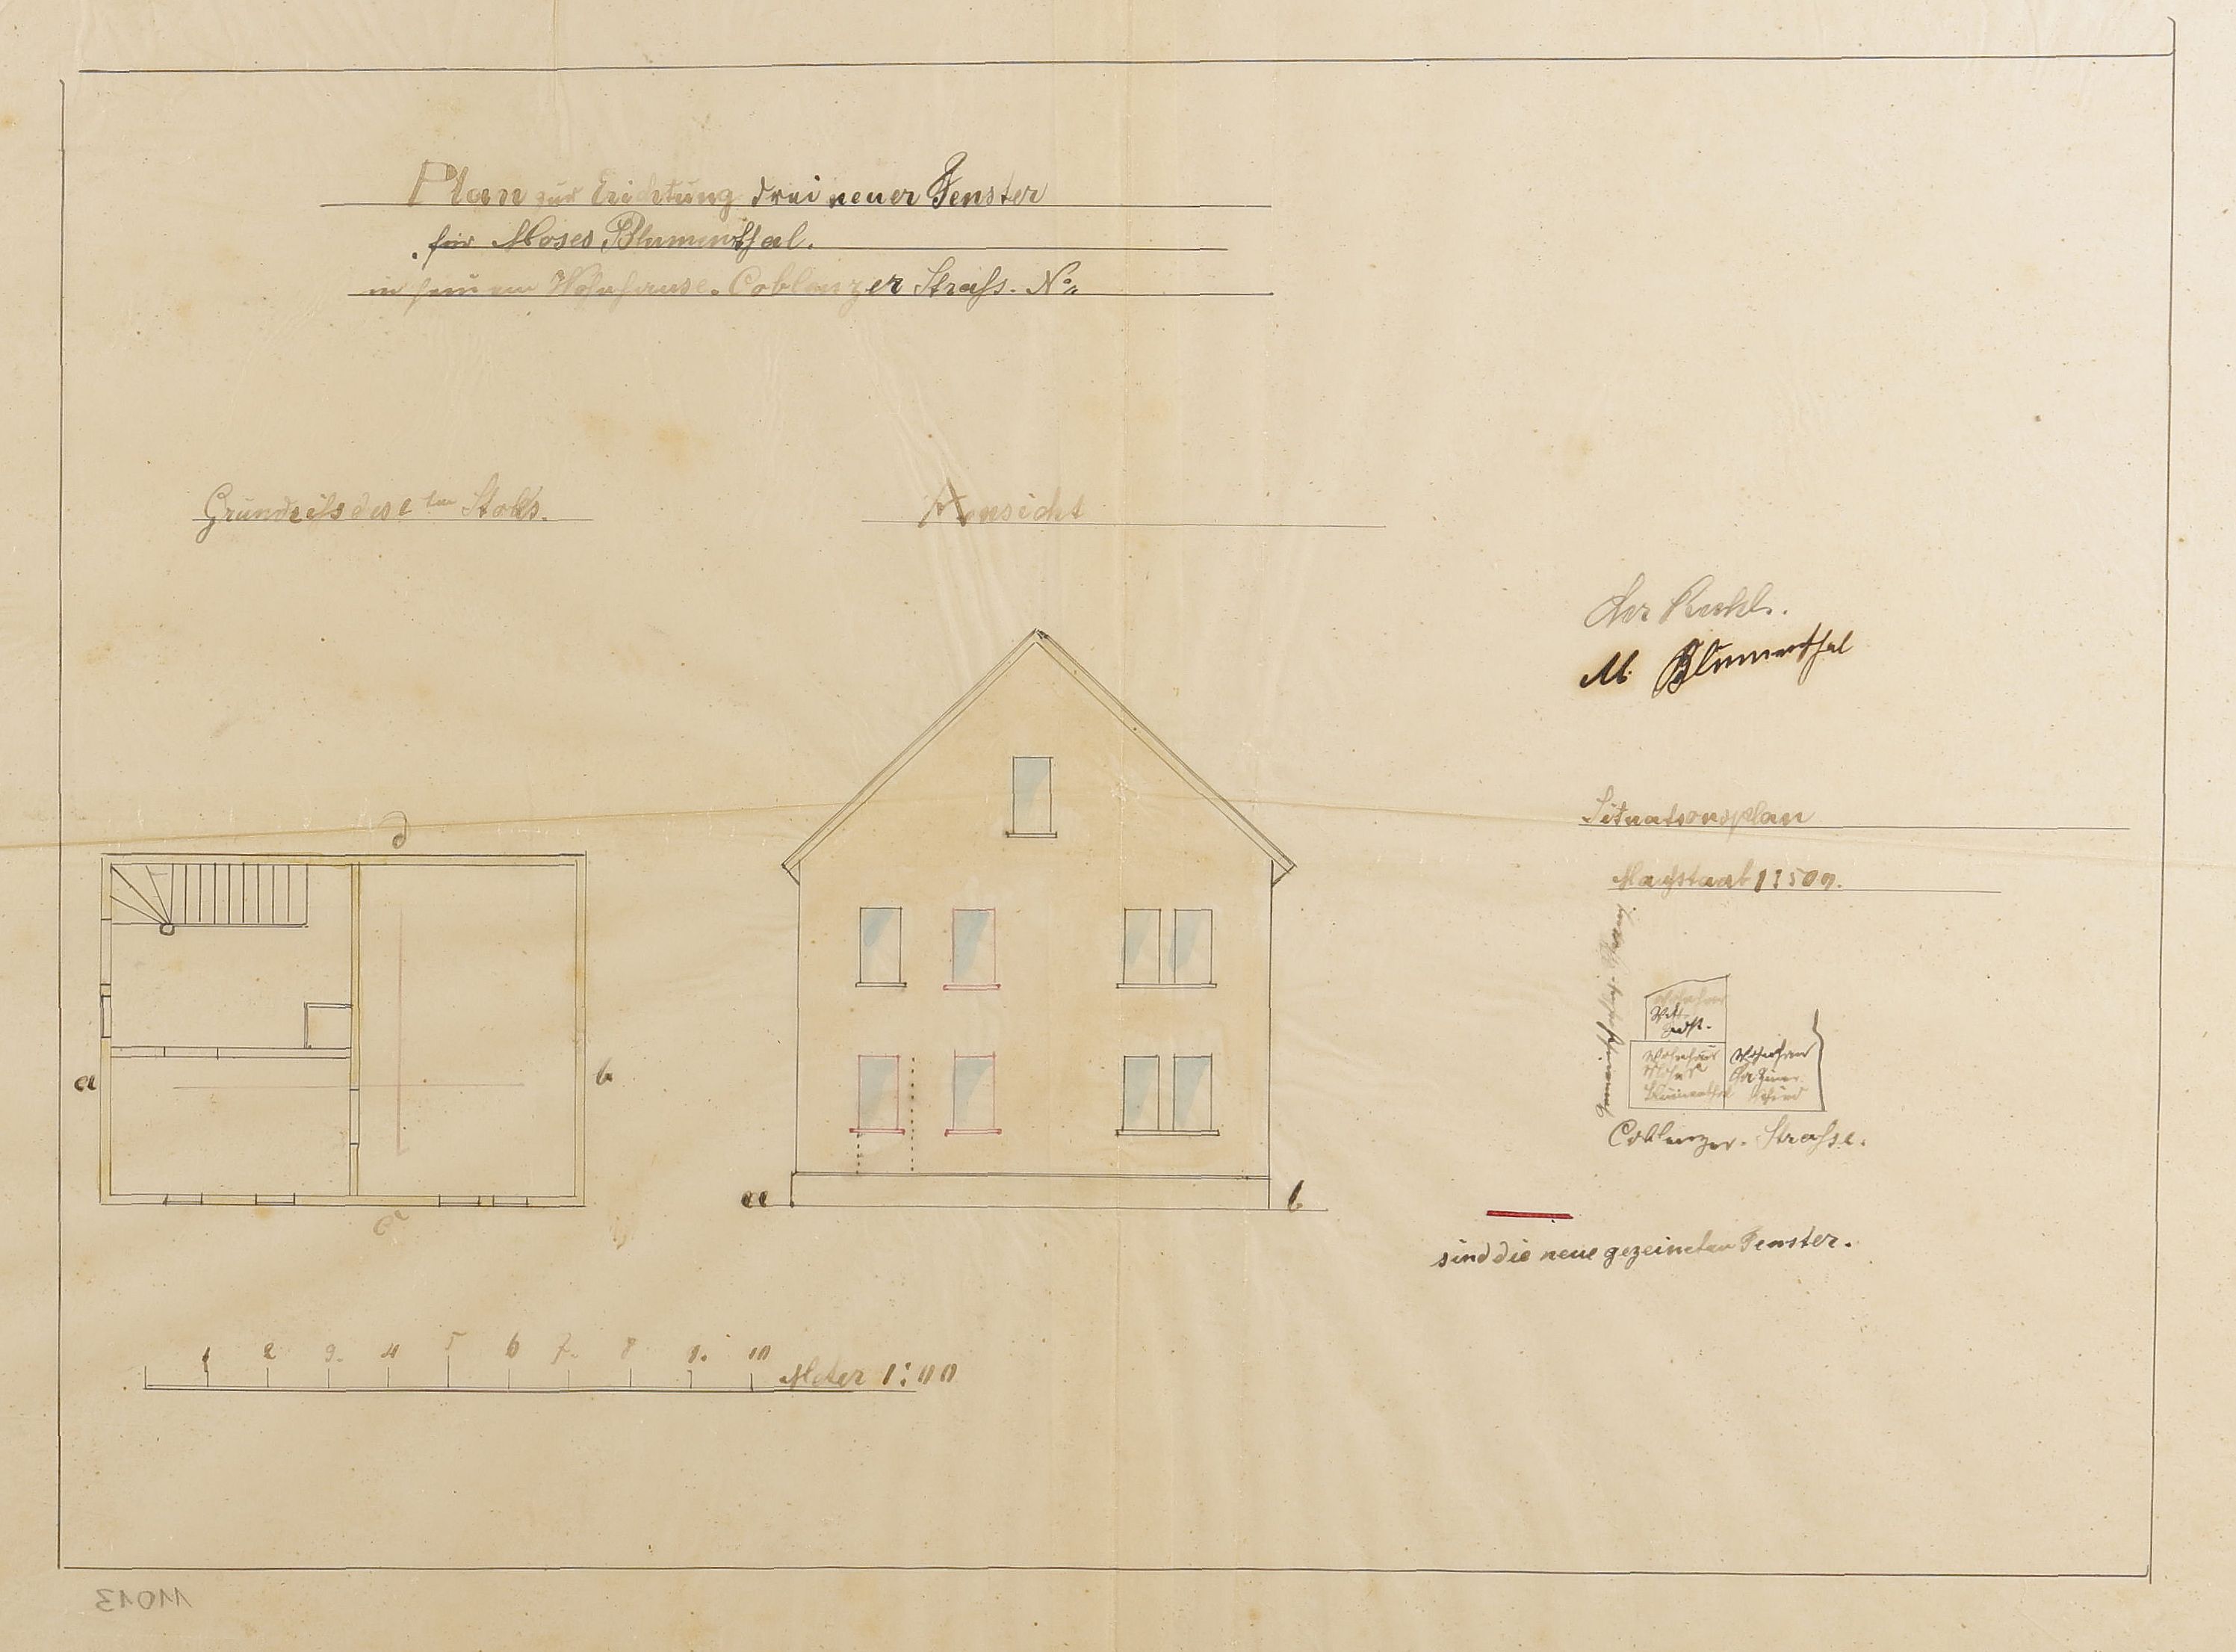 Plan zur Erichtung drei neuer Fenster
für Moses Blumenthal.
in seinem Wohnhause. Coblenzer Strafs. No
Grundrifs des 2ten Stoks.
Ansicht
M. Blumenthal
Situationsplan
Mafstaab 1:500.
Wohnhaus
Moses
Blumenthal
Wohnhaus
Coblenzer. Strafse.
d
a
b
c
a
b
sind die neue gezeineten Fenster.
1 2 3. 4 5 6 7. 8 9. 10 Meter 1:100
11013